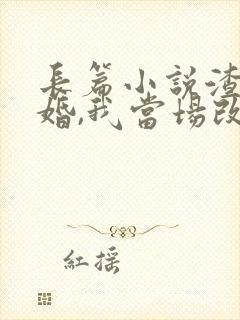 長篇小說渣
婚,我當場改
紅搖